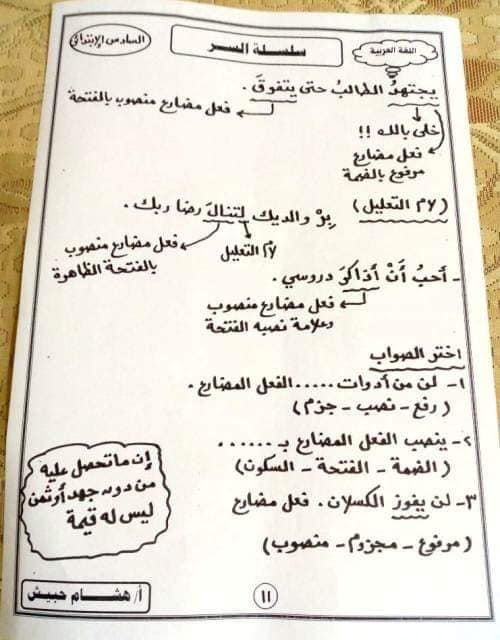 اللغة العربية
سلسلة السر
السادس الإبتدائي
يجتهدُ الطالبُ حتى يتفوقَ .
فعل مضارع منصوب بالفتحة
خلى بالك !!
فعل مضارع
مرفوع بالضمة
( لام التعليل )
بِرْ والديك لتنالَ رضا ربك .
لام التعليل
فعل مضارع منصوب
بالفتحة الظاهرة
- أحبُ أَنْ أذاكرَ دروسي .
فعل مضارع منصوب
وعلامة نصبه الفتحة
اختر الصواب
١- لن من أدوات ..... الفعل المضارع .
( رفع - نصب - جزم )
٢- ينصب الفعل المضارع بـ ......
( الضمة - الفتحة - السكون )
٣- لن يفوز الكسلان . فعل مضارع
( مرفوع - مجزوم - منصوب )
إن ما تحصل عليه
من دون جهد أو ثمن
ليس له قيمة
١١
أ/ هشام حبيش